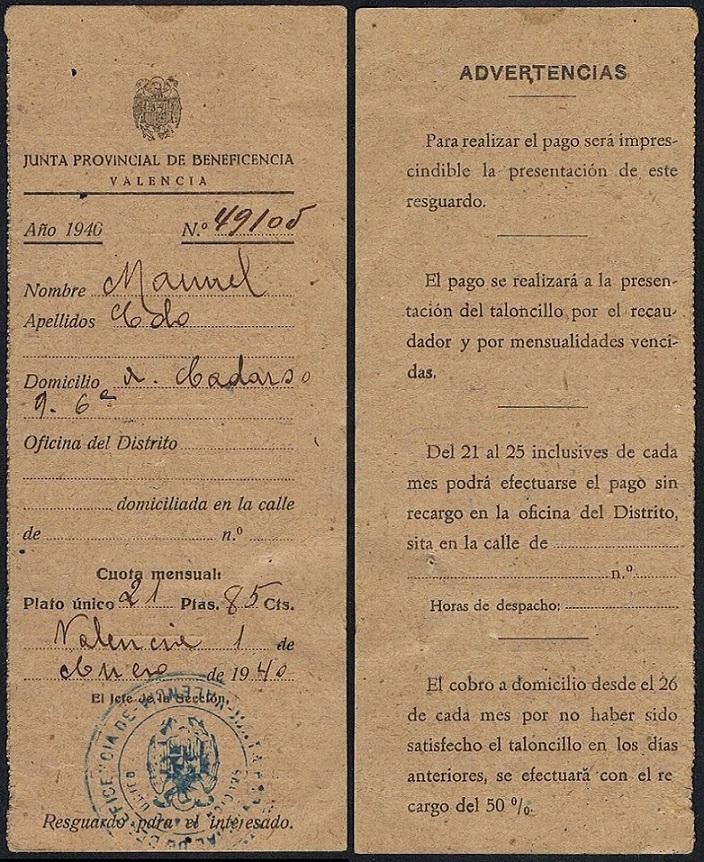 JUNTA PROVINCIAL DE BENEFICENCIA
VALENCIA
Año 1940 N.º 49105
Nombre Manuel
Apellidos Edo
Domicilio A. Cadarso
9. 6ª
Oficina del Distrito
domiciliada en la calle
de n.º
Cuota mensual:
Plato único 21 Ptas. 85 Cts.
Valencia 1 de
Enero de 1940
El Jefe de la Sección,
Resguardo para el interesado.
ADVERTENCIAS
Para realizar el pago será impres-
cindible la presentación de este
resguardo.
El pago se realizará a la presen-
tación del taloncillo por el recau-
dador y por mensualidades venci-
das.
Del 21 al 25 inclusives de cada
mes podrá efectuarse el pago sin
recargo en la oficina del Distrito,
sita en la calle de
n.º
Horas de despacho:
El cobro a domicilio desde el 26
de cada mes por no haber sido
satisfecho el taloncillo en los días
anteriores, se efectuará con el re
cargo del 50 %.